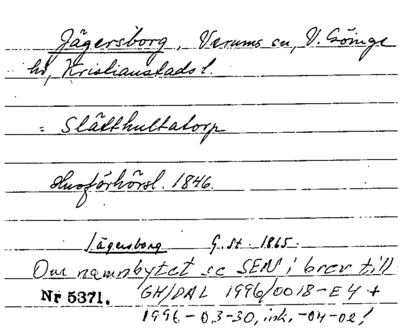 Jägersborg, Verums sn, V. Göinge
hd, Kristianstads l.
= Slätthultatorp
Husförhörsl. 1846.
Jägersborg G. St. 1865.
Om namnbytet se SEN i brev till
Nr 5371. GH/DAL 1996/0018-E4 +
1996-03-30, ink. -04-02!